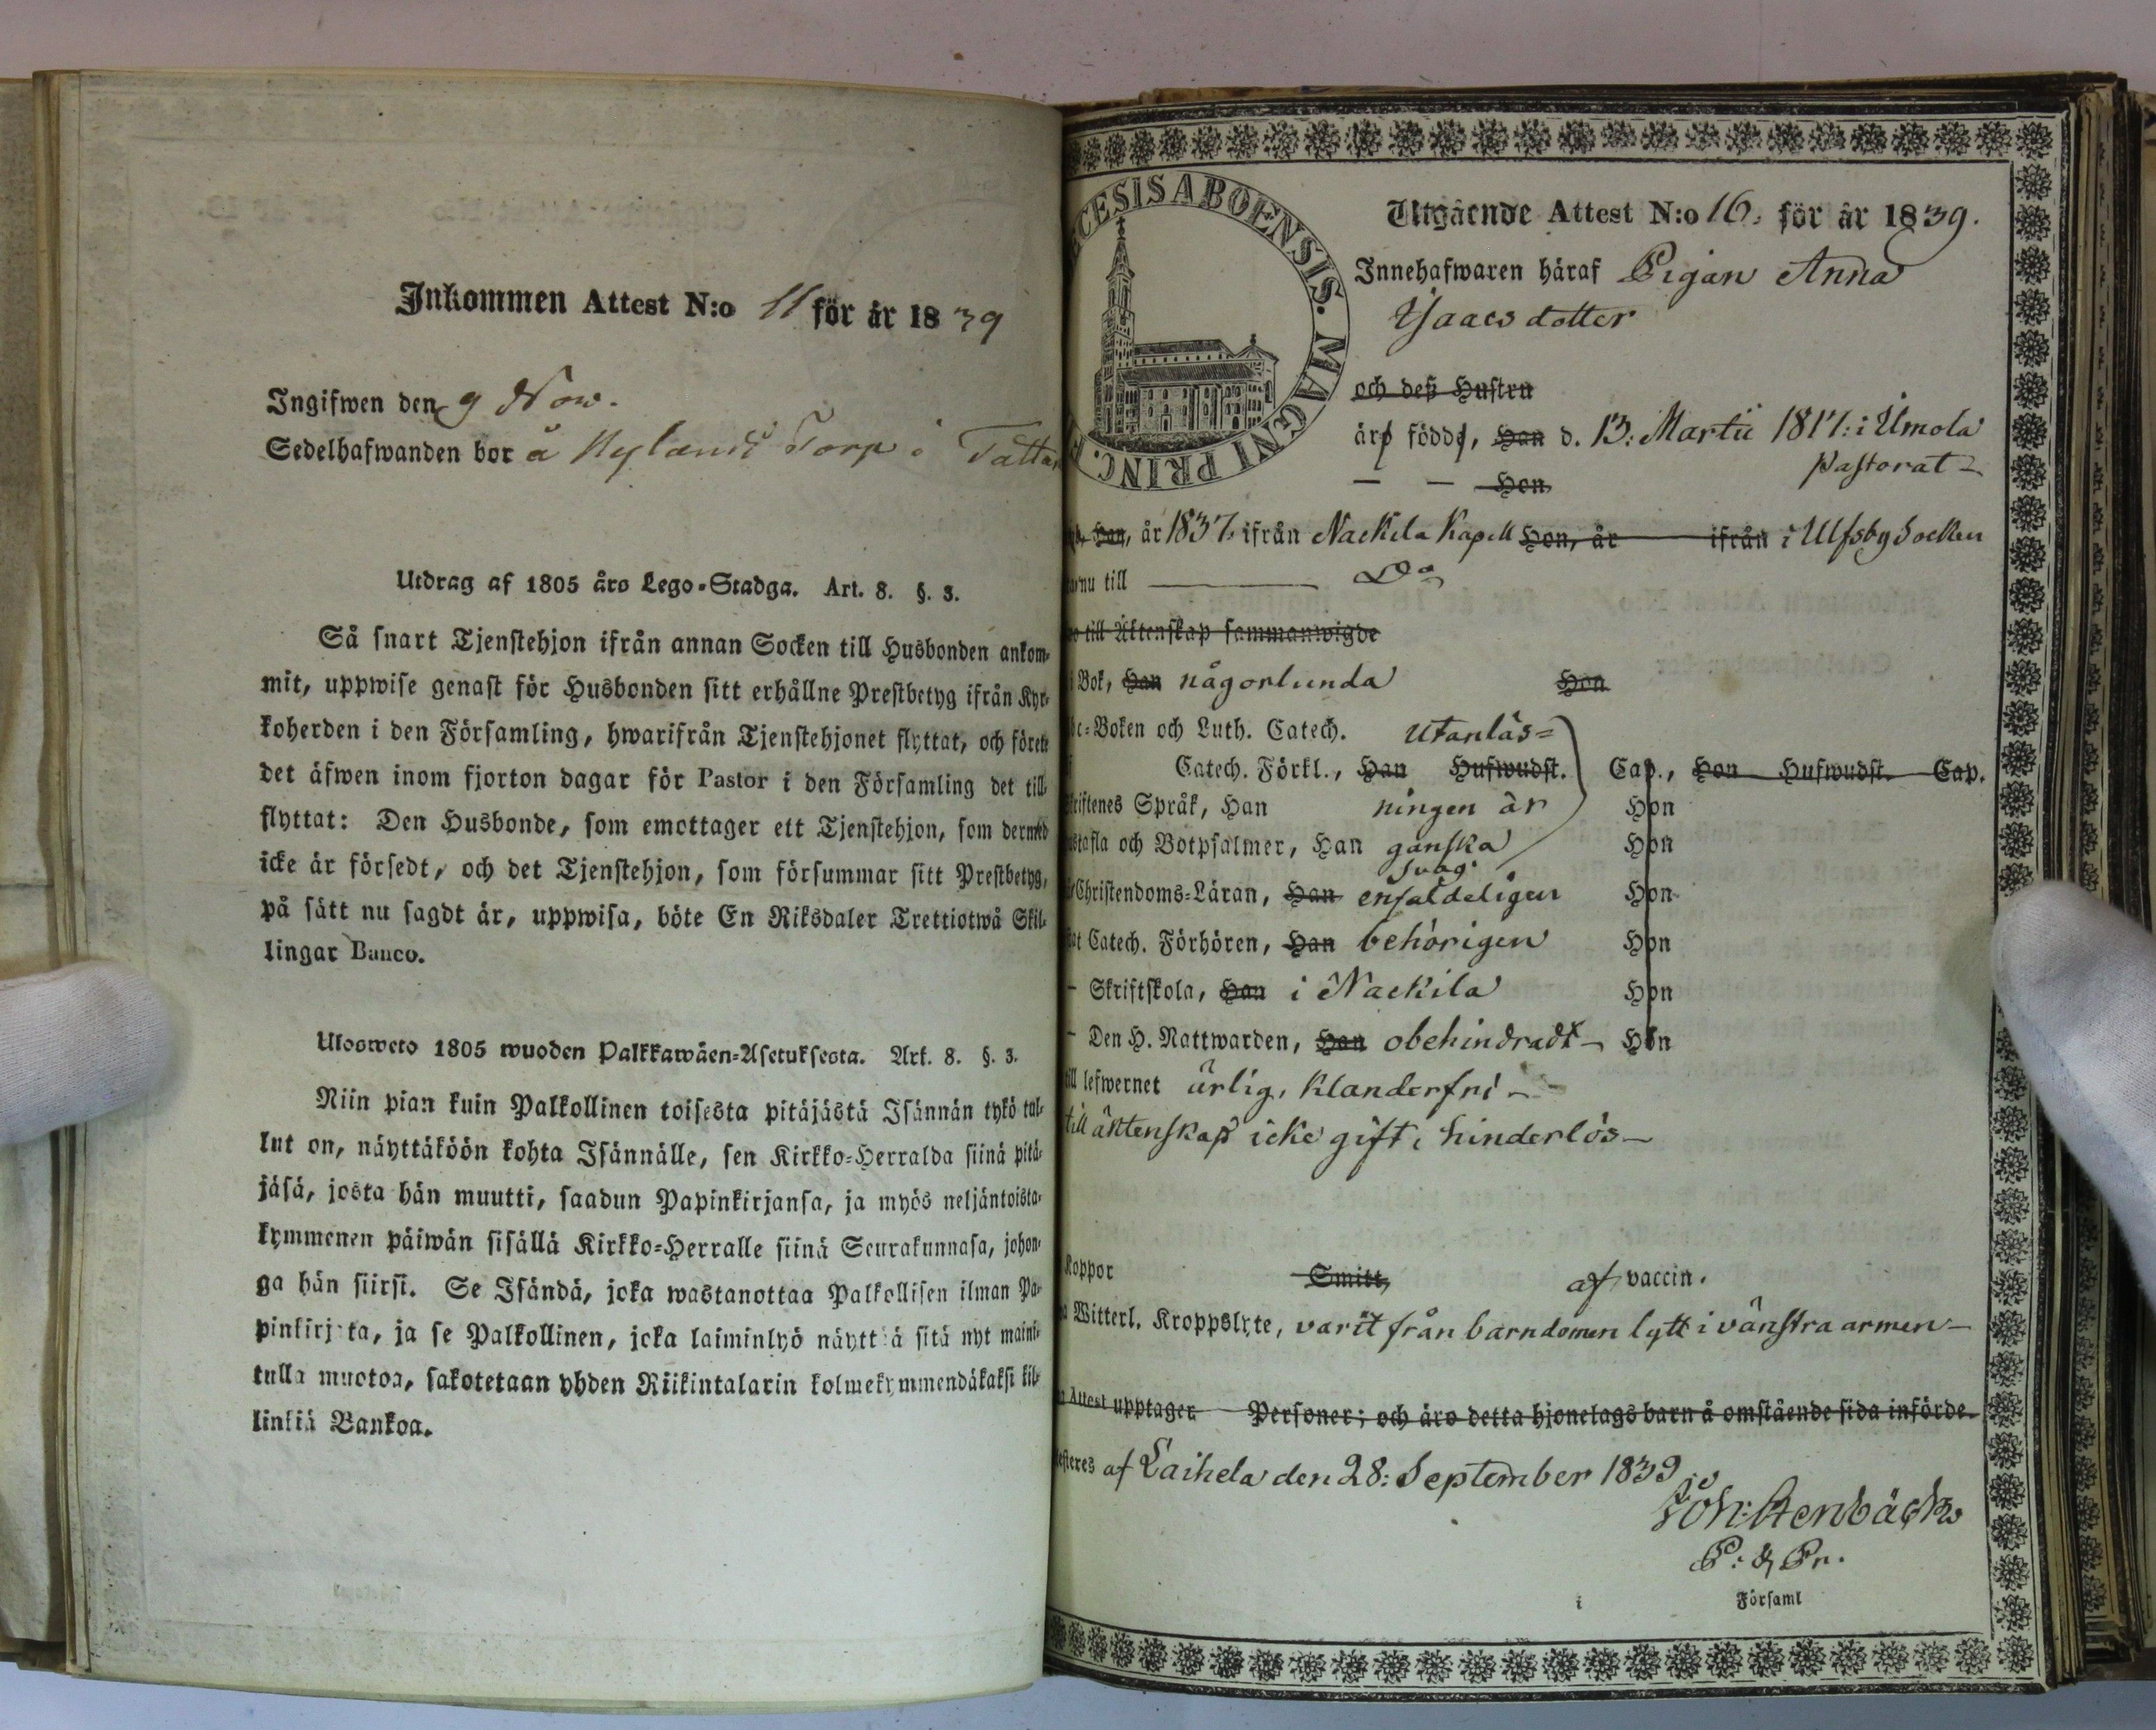 Inkommen Attest N:o 11 för år 1839
Ingifwen den 9 Now.
Sedelhafwanden bor å Nylands Torp i Tattar
Utdrag af 1805 års Lego-Stadga. Art. 8. §. 3.
Så snart Tjenstehjon ifrån annan Socken till Husbonden ankom-
mit, uppwise genast för Husbonden sitt erhållne Prestbetyg ifrån Kyr-
koherden i den Församling, hwarifrån Tjenstehjonet flyttat, och förete
det äfwen inom fjorton dagar för Pastor i den Församling det till-
flyttat: Den Husbonde, som emottager ett Tjenstehjon, som dermed
icke är försedt, och det Tjenstehjon, som försummar sitt Prestbetyg,
på sätt nu sagdt är, uppwisa, böte En Riksdaler Trettiotwå Skil-
lingar Banco.
Ulosweto 1805 wuoden Palkkawäen-Asetuksesta. Art. 8. §. 3.
Niin pian kuin Palkollinen toisesta pitäjästä Isännän tykö tul-
lut on, näyttäköön kohta Isännälle, sen Kirkko-Herralda siinä pitä-
jäsä, josta hän muutti, saadun Papinkirjansa, ja myös neljäntoista-
kymmenen päiwän sisällä Kirkko-Herralle siinä Seurakunnasa, johon-
ga hän siirsi. Se Isändä, joka wastanottaa Palkollisen ilman Pa-
pinkirjata, ja se Palkollinen, joka laiminlyö näyttää sitä nyt maini-
tulla muotoa, sakotetaan yhden Riikintalarin kolmekymmendäkaksi kil-
linkiä Bankoa.
CESIS ABOENSIS. MAGNI PRINC. F
Utgående Attest N:o 16. för år 1839.
Innehafwaren häraf Pigan Anna
Isaacsdotter
och deß Hustru
är född, Han d. 13: Martii 1817: i Ulmola
Pastorat
— — Hon
Han, år 1837 ifrån Nackila Kapell Hon, år ifrån i Ulfsby Socken
nu till ——— Do
till Äktenskap sammanwigde
i Bok, Han någorlunda Hon
bc-Boken och Luth. Catech. utanläs=
Catech. Förkl., Han Hufwudst. Cap., Hon Hufwudst. Cap.
kriftenes Språk, Han ningen är Hon
stafla och Botpsalmer, Han ganska Hon
svag.
Christendoms-Läran, Han enfaldeligen Hon
at Catech. Förhören, Han behörigen Hon
— Skriftskola, Han i Nackila Hon
— Den H. Nattwarden, Han obehindradt — Hon
till lefwernet ärlig, klanderfri —
till äktenskap icke gift, hinderlös —
Koppor Smitt, af vaccin.
Witterl. Kroppslyte, varit från barndomen lytt i vänstra armen —
Attest upptager Personer; och äro detta hjonelags barn å omstående sida införde.
esteres af Laihela den 28: September 1839
Joh: Stenbäck
P. & Pr.
i Församl